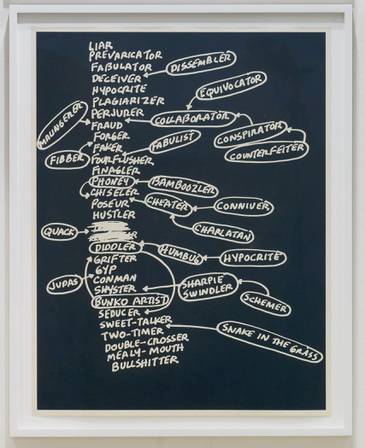 LIAR
PREVARICATOR
FABULATOR
DISSEMBLER
DECEIVER
EQUIVOCATOR
HYPOCRITE
PLAGIARIZER
MALINGERER
PERJURER
COLLABORATOR
FRAUD
CONSPIRATOR
FORGER
FABULIST
FAKER
COUNTERFEITER
FIBBER
FOURFLUSHER
FINAGLER
PHONEY
BAMBOOZLER
CHISELER
CHEATER
POSEUR
CONNIVER
HUSTLER
CHARLATAN
QUACK
DIDDLER
HUMBUG
HYPOCRITE
GRIFTER
GYP
JUDAS
CONMAN
SHARPIE
SHYSTER
SWINDLER
BUNKO ARTIST
SCHEMER
SEDUCER
SWEET-TALKER
SNAKE IN THE GRASS
TWO-TIMER
DOUBLE-CROSSER
MEALY-MOUTH
BULLSHITTER